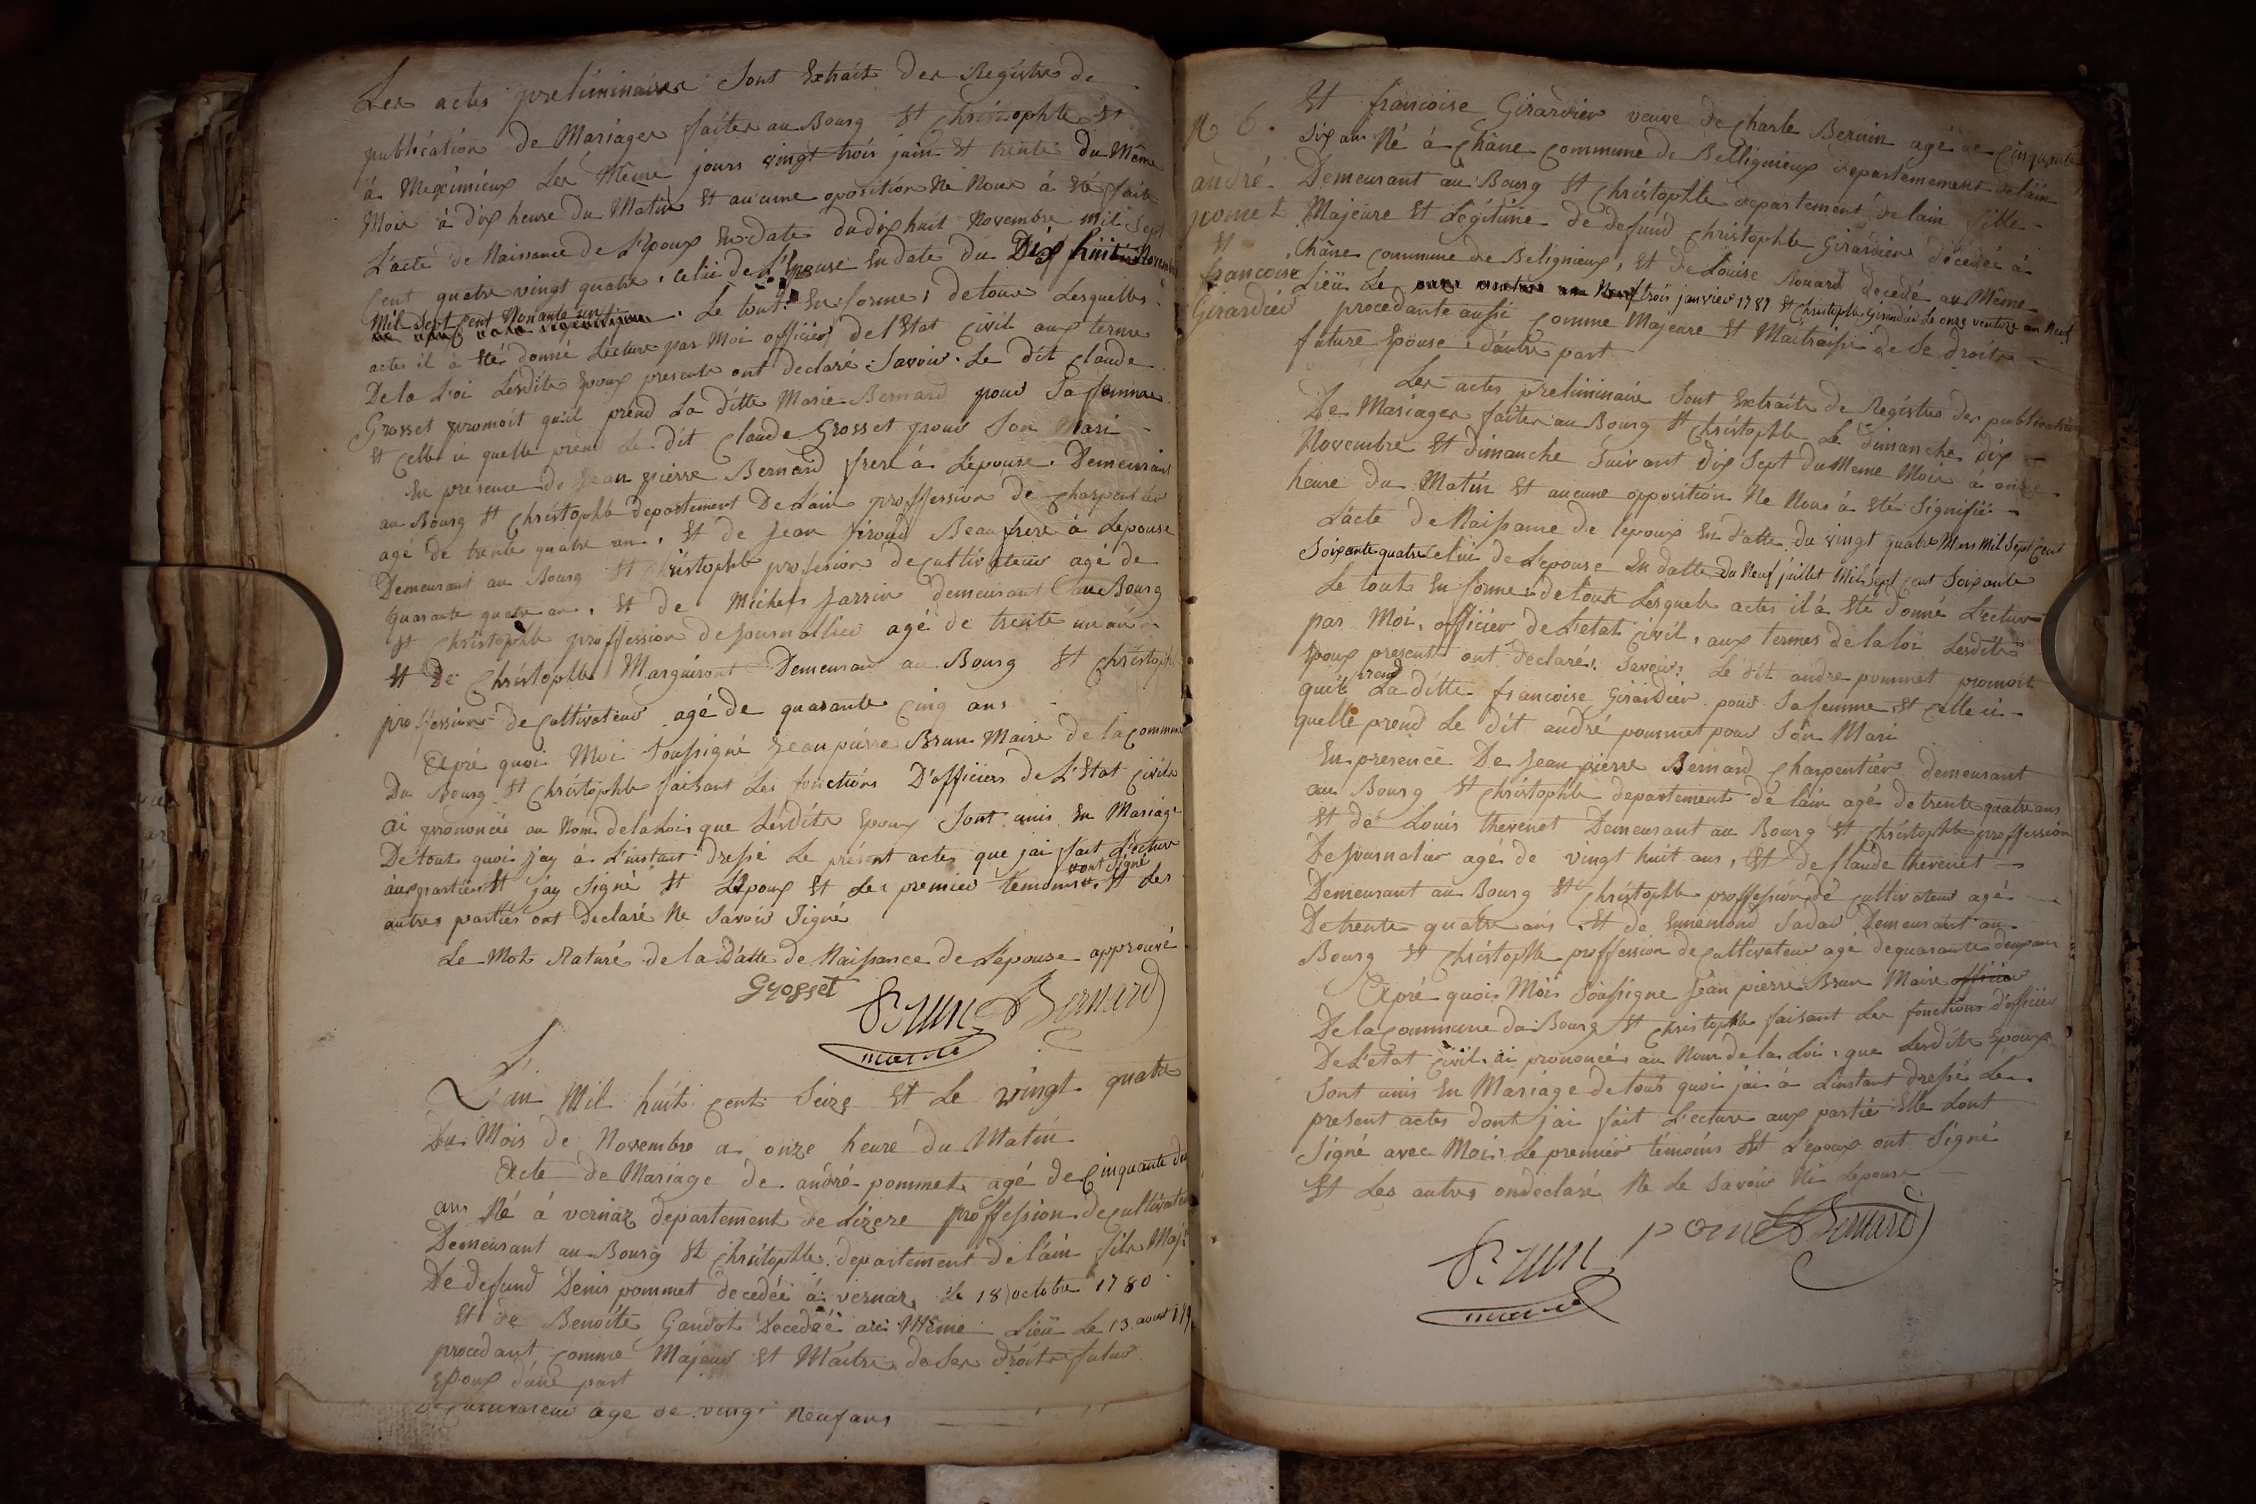 Les actes preliminaires Sont Extrait des Registre de
publication de Mariages faites au Bourg St Christophle Et
à Meximieux Les Même jours vingt trois juin Et trente du Même
Mois à dix heure du Matin Et aucune oposition Ne Nous à Eté faite
L'acte de Naissance de L'Epoux En date du dix huit Novembre Mil Sept
Cent quatre vingt quatre, celui de L'Epouse En date du Dix huit Novembre
Mil Sept Cent Nonante un Le tout En forme, de tous Lesquelles
actes il à Eté donné Lecture par Moi officier de l'Etat Civil aux terme
De la Loi Lesdits Epoux presents ont declaré Savoir. Le dit Claude
Grosset promoit qu'il prend La ditte Marie Bernard pour Sa femme
Et Celle ci quelle prend Le dit Claude Grosset pour Son Mari
En presence de Jean pierre Bernard frere à L'epouse. Demeurant
au Bourg St Christophle departement De L'ain proffession de Charpentier
agé de trente quatre an. Et de Jean Beau frere à Lepouse
Demeurant au Bourg St Christophle profession de cultivateur agé de
quarante quatre an. Et de Michel Jarrin demeurant au Bourg
St Christophle proffession de journallier agé de trente un an
Et De Christophle Marguiront Demeurant au Bourg St Christophle
proffession de Cultivateur agé de quarante Cinq ans
Apré quoi Moi Soussigné Jean pierre Brun Maire de la commune
Du Bourg St Christophle faisant Les fonctions D'officiers de L'Etat Civile
ai prononcée au Nom de la Lois que Lesdits Epoux Sont unis En Mariage
De tout quoi j'ay à L'instant dressé Le présent actes que jai fait Lecture
aux parties Et jay Signé Et L'Epoux Et Les premier temoins ont Signé Et Les
autres parties ont declaré Ne Savoir Signé
Le Mot Raturé de la Datte de Naissance de Lépouse approuvé
Grosset Brun Bernard
maire
L'an Mil huit Cent Seize Et Le vingt quatre
Du Mois de Novembre a onze heure du Matin
Acte de Mariage de andré pommet agé de Cinquante deux
ans Né à vernaz departement de Lizere proffession de cultivateur
Demeurant au Bourg St Christophle departement de l'ain fils Maj.
De defund Denis pommet decedéé à vernaz Le 18 octobre 1780
Et de Benoîte Gandot Decedéé au Même Lieu Le 13 aout
procedant comme Majeur Et Maitre de Ses droits futur
Epoux d'une part
De Cultivateur agé de vingt Neuf ans
N 6.
andré
pomet
Et
françoise
Girardier
Et françoise Girardier veuve de Charle Bernin agé de Cinquante
Six ans Né à Châne Commune de Belligneux departement de l'ain
Demeurant au Bourg St Christophle departement de lain fille
Majeure Et Legitime de defund Christophle Girardier décedée à
Châne Commune de Beligneux, Et de Louise Rouard decedé au Même
Lieü Le trois janvier 1789 Et Christophle Girardier Le onze ventôse an Neuf
procedante aussi Comme Majeure Et Maitraisse de Se droits
future Epouse, d'autre part
Les actes preliminaire Sont Extraits de Registres des publication
De Mariages faites au Bourg St Christophle Le dimanche dix
Novembre Et dimanche Suivant dix Sept du Meme Mois à onze
heure du Matin Et aucune opposition Ne Nous à Eté Signifié
L'acte de Naissance de lepoux En datte du vingt quatre Mars Mil Sept Cent
Soixante quatre Celui de Lepouse En datte Du Neuf juillet Mil Sept Cent Soixante
Le tout En forme: de tous Lesquels actes il à Eté donné Lecture
par Moi, officier de L'etat Civil, aux termes de la loi Lesdits
Epoux presents ont Declaré. Savoir: Le dit andré pommet promoit
quil prend La ditte françoise Girardier pour Sa femme Et Celle ci
quelle prend Le dit andré pommet pour Son Mari
En presence De Jean pierre Bernard Charpentier demeurant
au Bourg St Christophle departement de lain agé de trente quatre ans
Et de Louis thevenet Demeurant au Bourg St Christophle proffession
De journalier agé de vingt huit ans, Et de Claude thevenet
Demeurant au Bourg St Christophle proffession de cultivateur agé
De trente quatre ans Et de Ennemond Demeurant au
Bourg St Christophle proffession de cultivateur agé de quarante deux ans
Apré quoi Moi Soussigne Jean pierre Brun Maire officier
De la Commune du Bourg St Christophle faisant Les fonctions d'officier
De L'etat Civil ai prononcée au Nom de la Loi, que Lesdits Epoux
Sont unis En Mariage de tous quoi jai à Linstant dressé Le
present actes dont jai fait Lecture aux partie Elle Lont
Signé avec Moi: Le premier témoins Et L'epoux ont Signé
Et Les autres on declaré Ne Le Savoir Ni Lepouse
Brun pomet Bernard
maire